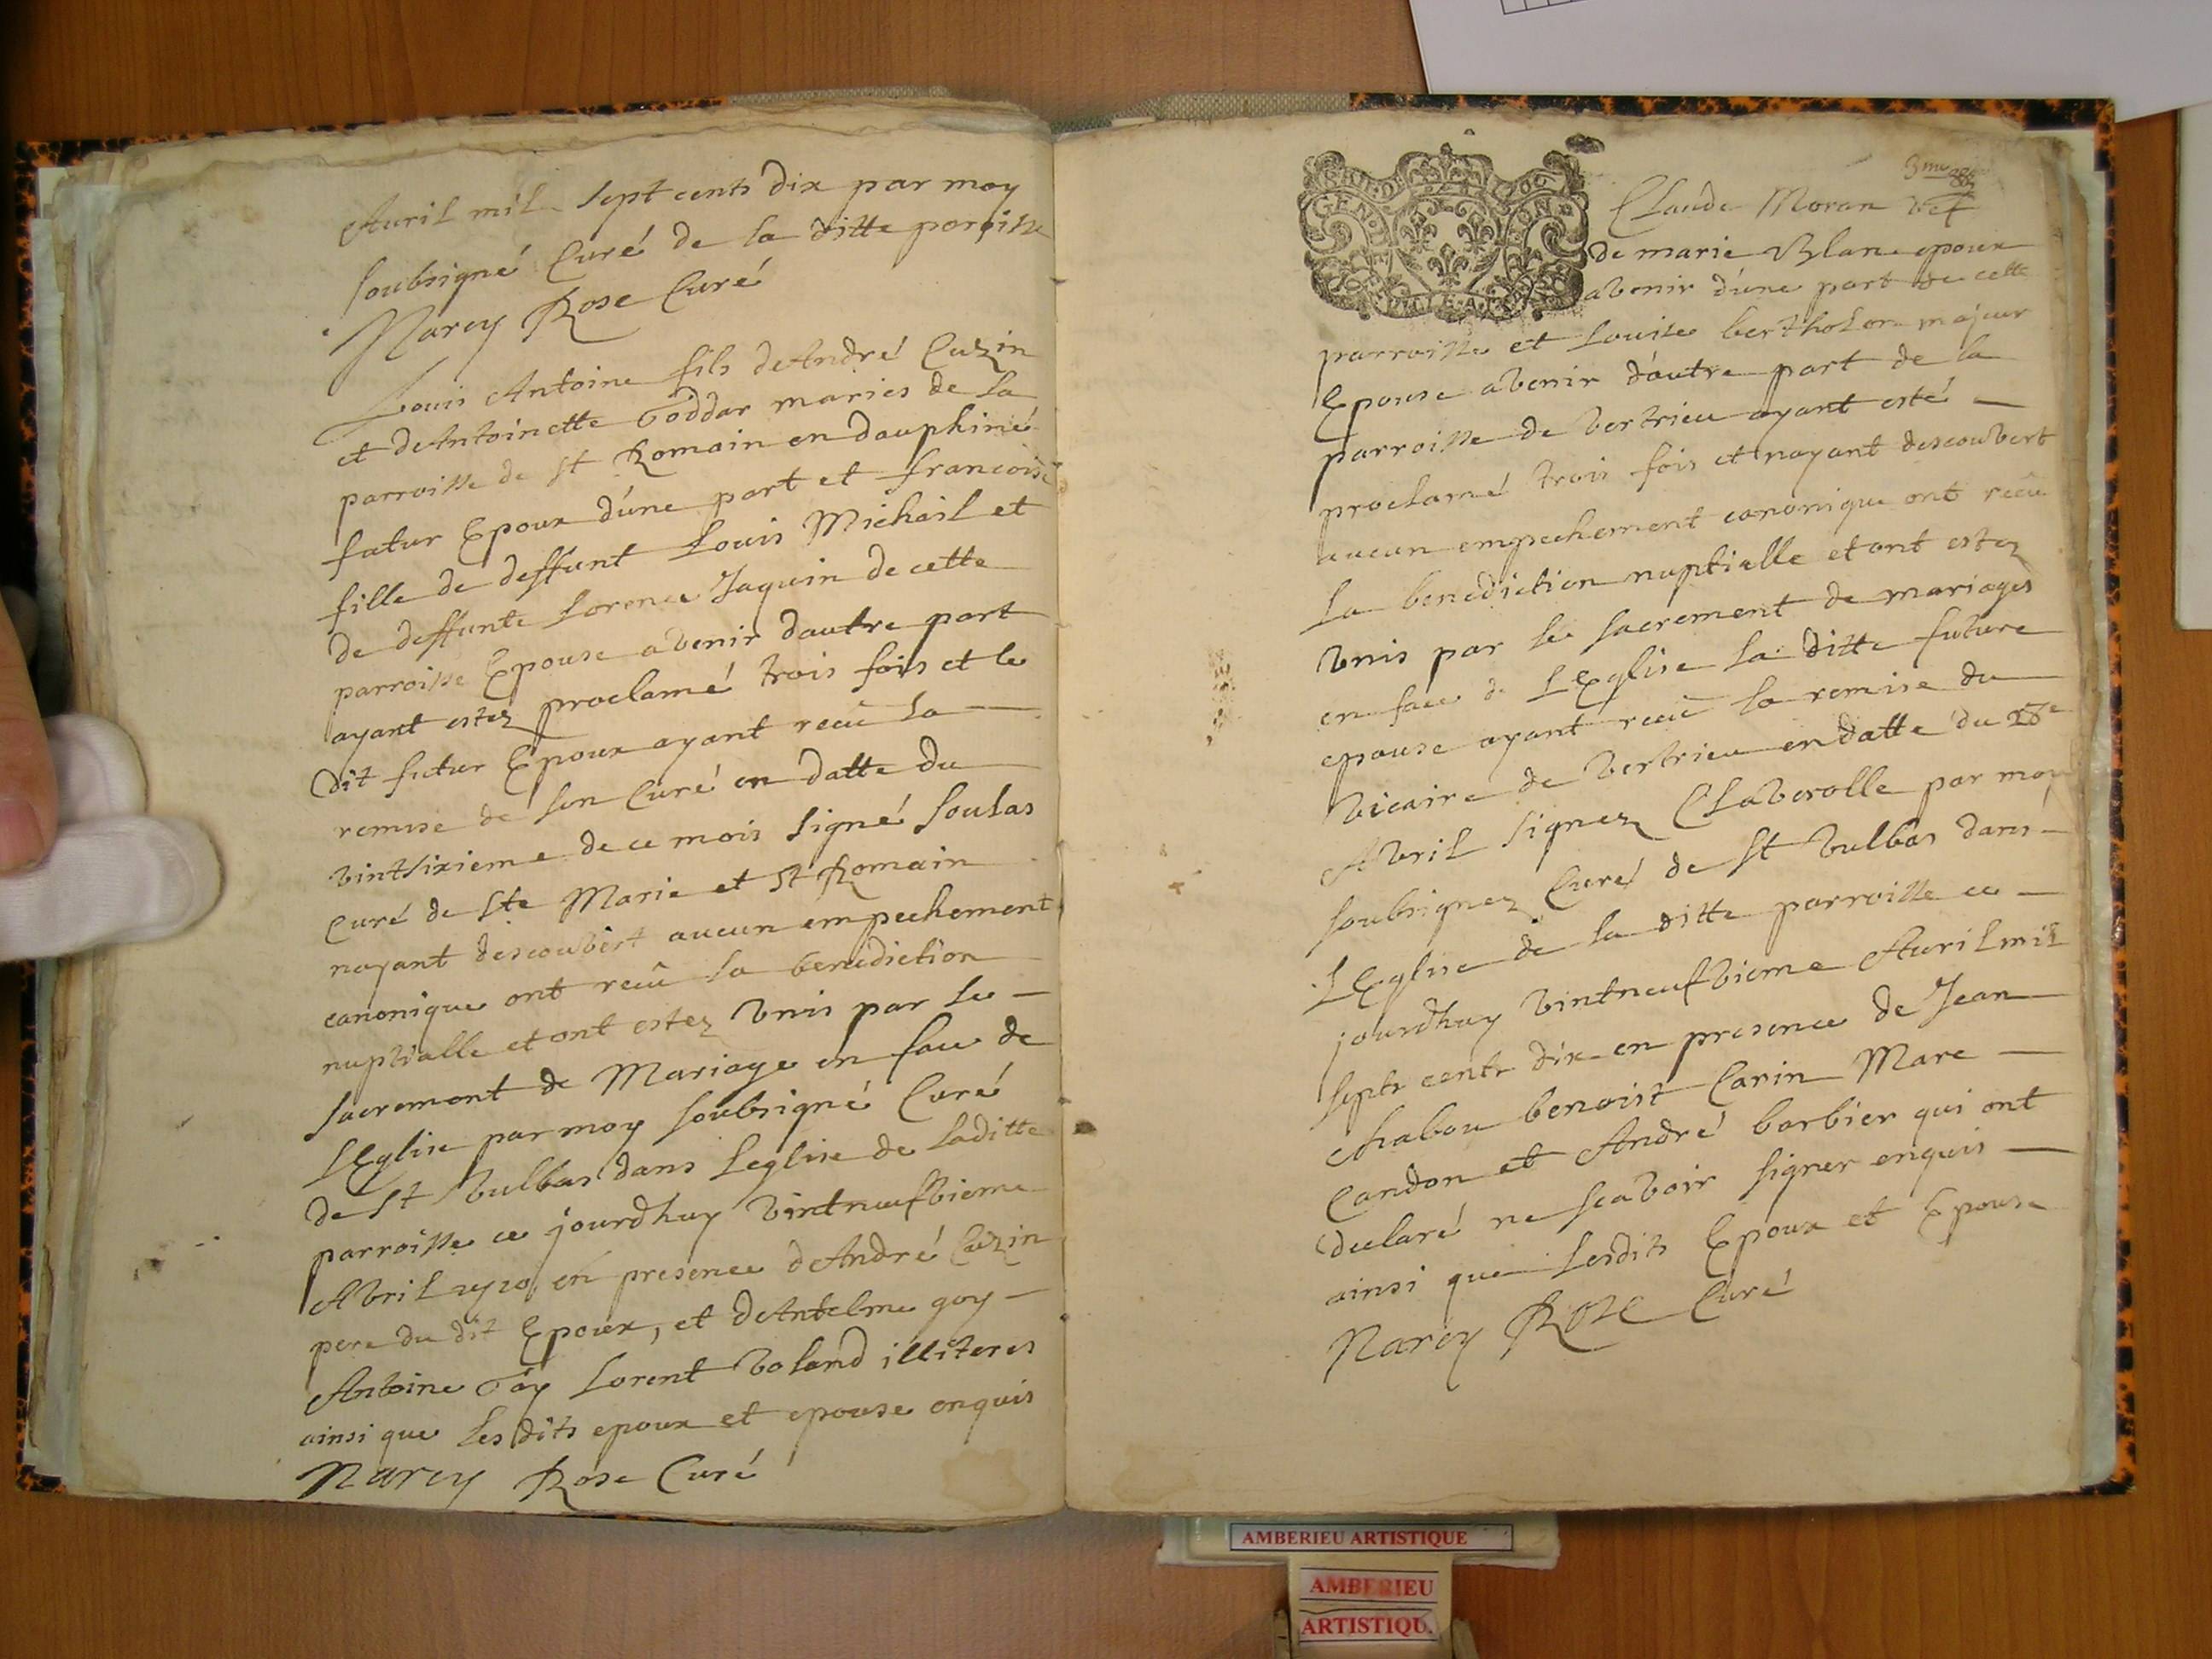 Auril mil sept cents dix par moy
soubsigné Curé de la ditte paroisse
Narcy Rose Curé
Louis Antoine fils de André Cuzin
et de Antoinette Goddar mariés de la
parroisse de St Romain en dauphiné
futur Epoux d'une part et francoise
fille de deffunt Louis Michail et
de deffunte Lorence Jaquin de cette
parroisse Epouse avenir dautre part
ayant estez proclamé trois fois et le
dit futur Epoux ayant receu la
remise de son Curé en datte du
vintsixieme de ce mois signé soulas
Curé de Ste Marie et St Romain
nayant descouvert aucun empechement
canonique ont receu la benediction
nuptialle et ont estez vnis par le
sacrement de Mariage en face de
LEglise par moy soubsigné Curé
de St Vulbas dans Leglise de laditte
parroisse ce jourdhuy vintneufvieme
Avril 1710 en presence de André Cuzin
pere du dit Epoux, et de Antelme goy
Antoine Lorent voland illiteres
ainsi que lesdits epoux et epouse enquis
Narcy Rose Curé
3me
Claude Moran vef
de marie Blanc epoux
avenir d'une part de cette
parroisse et Louise bertholon majeur
Epouse avenir d'autre part de la
parroisse de vertrieu ayant esté
proclamé trois fois et nayant descouvert
aucun empechement canonique ont receu
la benediction nuptialle et ont estez
vnis par le sacrement de mariages
en face de LEglise la ditte future
epouse ayant receu la remise du
vicaire de vertrieu en datte du 28e
Avril signez Claverolle par moy
soubsignez Curé de St Vulbas dans
LEglise de la ditte parroisse ce
jourdhuy vintneufvieme Auril mil
septs cents dix en presence de Jean
chabou benoist Carin Marc
Candon et André barbier qui ont
declaré ne scavoir signer enquis
ainsi que lesdits Epoux et Epouse
Narcy Rose Curé
AMBERIEU ARTISTIQUE
AMBERIEU
ARTISTIQU